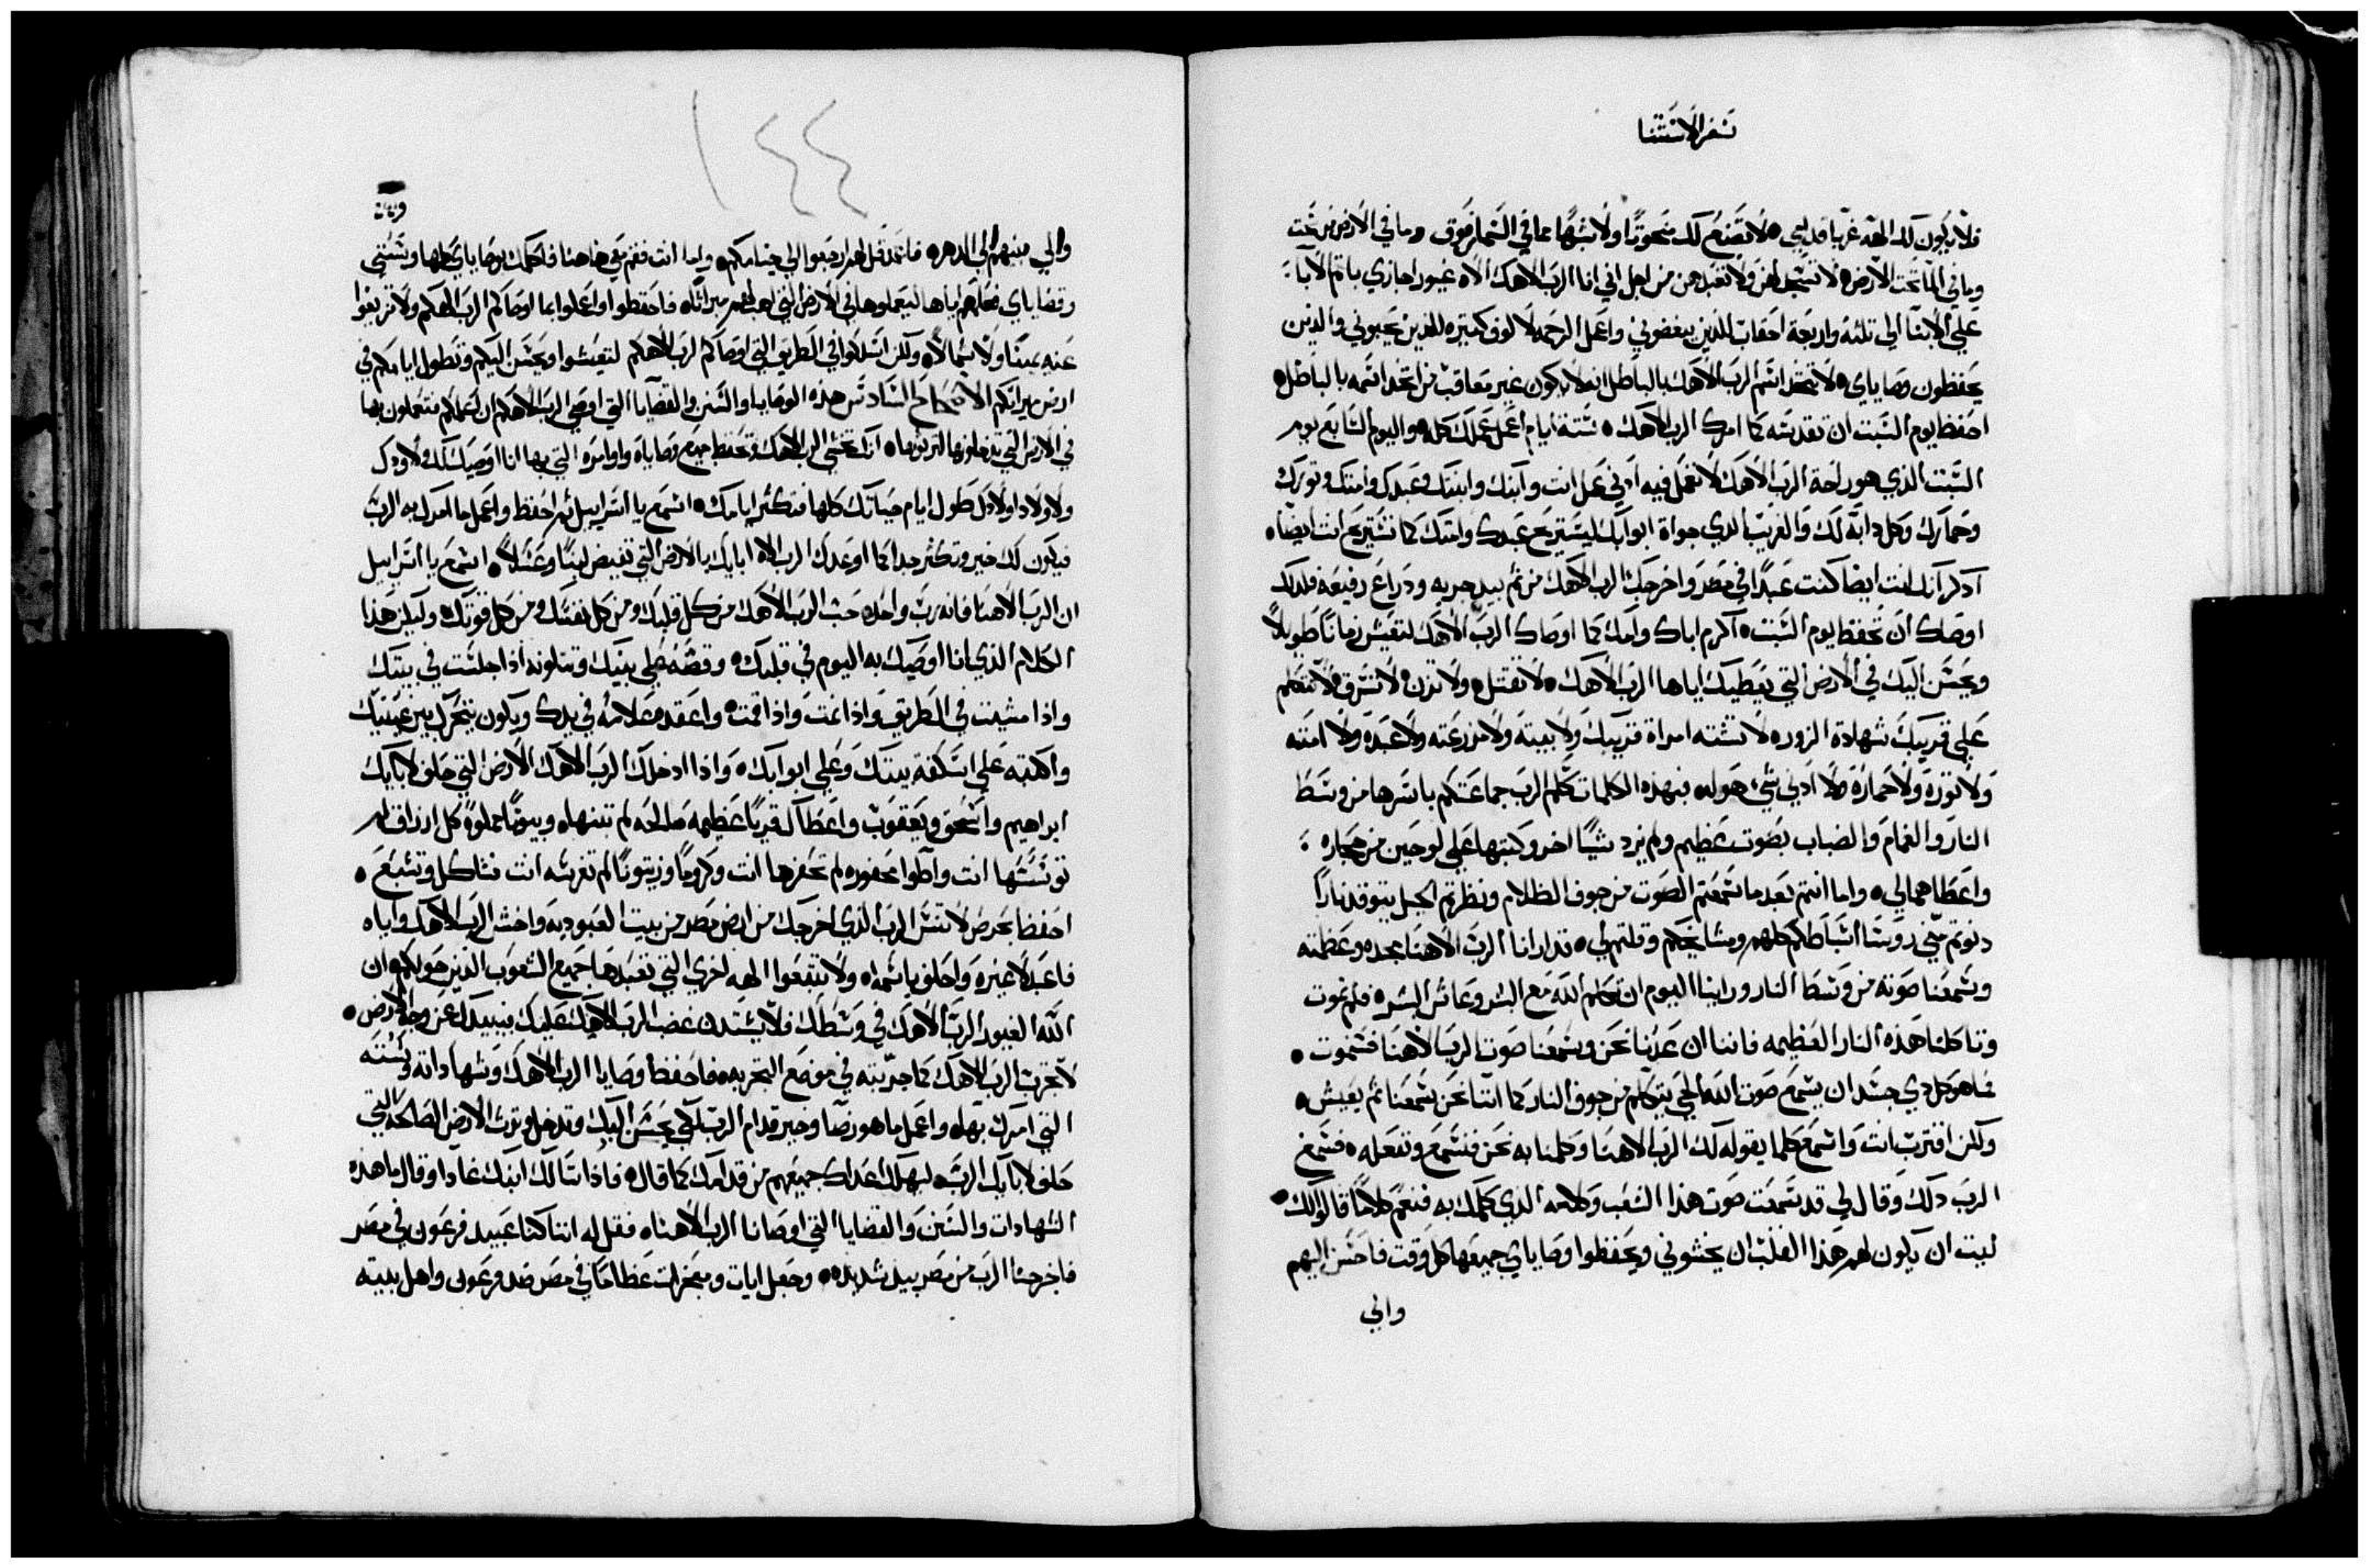 سفر الاستثنا
فلا يكون لك الهة غربا قدامي ۰ لا تصنع لك منحوتا ولا شبها مما في السما من فوق وما في الارض من تحت
وما في الما تحت الارض ۰ لا تسجد لهن ولا تعبدهن من اجل اني انا الرب الاهك الاه غيور اجازي باثم الابا
علي الابنا الي ثلثة واربعة احقاب للذين يبغضوني واعمل الرحمه لالوف كثيره للذين يحبوني والذين
يحفظون وصاياي ۰ لا تتخذ اسم الرب الاهك بالباطل انه لا يكون غير معاقب من اتخذ اسمه بالباطل ۰
احفظ يوم السبت ان تقدسه كما امرك الرب الاهك ۰ ستة ايام اعمل عملك كله ۰ واليوم السابع يوم
السبت الذي هو راحة الرب الاهك لا تعمل فيه ادني عمل انت وابنك وابنتك وعبدك وامتك وثورك
وحمارك وكل دابه لك والغريب الذي جواة ابوابك ليستريح عبدك وامتك كما تستريح انت ايضا ۰
اذكر انك انت ايضا كنت عبدا في مصر واخرجك الرب الاهك من ثم بيد حريه ودراع رفيعه فلدلك
اوصاك ان تحفظ يوم السبت ۰ اكرم اباك وامك كما اوصاك الرب الاهك لتعيش زمانا طويلا
ويحسن اليك في الارض التي يعطيك اياها الرب الاهك ۰ لا تقتل ۰ ولا تزن ۰ لا تسرق ۰ لا تتكلم
علي قريبك شهادة الزور ۰ لا تشته امراة قريبك ولا بيته ولا مزرعته ولا عبده ولا امته
ولا ثوره ولا حماره ولا ادني شي هو له ۰ فبهذه الكلمات تكلم الرب جماعتكم باسرها من وسط
النار والغمام والضباب بصوت عظيم ولم يزد شيا اخر وكتبها علي لوحين من حجاره
واعطاهما لي ۰ واما انتم بعد ما سمعتم الصوت من جوف الظلام ونظرتم الجبل يتوقد نارا
دنوتم مني روسا اسباطكم كلهم ومشايخكم وقلتم لي ۰ قد ارانا الرب الاهنا مجده وعظمته
وسمعنا صوته من وسط النار وراينا اليوم ان تكلم الله مع البشر وعاش البشر ۰ فلم نموت
وتاكلنا هذه النار العظيمه فاننا ان عدنا نحن وسمعنا صوت الرب الاهنا فسنموت ۰
فما هو كل دي جسد ان يسمع صوت الله الحي يتكلم من جوف النار كما اننا نحن سمعنا ثم يعيش ۰
ولكن اقترب انت واسمع كلما يقوله لك الرب الاهنا وكلمنا به نحن فنسمع ونفعله ۰ فسمع
الرب دلك وقال لي قد سمعت صوت هذا الشعب وكلامه الدي كلمك به فنعم كلاما قالوا لك ۰
ليت ان يكون لهم هذا القلب ان يخشوني ويحفظوا وصاياي جميعها كل وقت فاحسن اليهم
والي
١٤٤
والي بنيهم الي الدهر ۰ فامض قل لهم ارجعوا الي خيامكم ۰ واما انت فقم معي هاهنا فاكلمك بوصاياي كلها وسنني
وقضاياي فعلمهم اياها ليعملوها في الارض التي اهبها لهم ميراثا ۰ فاحفظوا واعملوا بما اوصاكم الرب الاهكم ولا تزيغوا
عنه يمينا ولا شمالا ۰ ولكن اسلكوا في الطريق التي اوصاكم الرب الاهكم لتعيشوا ويحسن اليكم وتطول ايامكم في
ارض ميراثكم الاصحاح السادس هذه الوصايا والسنن والقضايا التي اوصي الرب الاهكم ان اعلمكم فتعملون بها
في الارض التي تدخلونها لترثوها ۰ لتخشي الرب الاهك وتحفظ جميع وصاياه واوامره التي بها انا اوصيك لك ولاودك
ولاولاد اولادك طول ايام حياتك كلها فتكثر ايامك ۰ اسمع يا اسراييل ثم احفظ واعمل ما امرك به الرب
فيكون لك خير وتكثر جدا كما اوعدك الرب الاه ابايك بالارض التي تفيض لبنا وعسلا ۰ اسمع يا اسراييل
ان الرب الاهنا فانه رب واحد ۰ حب الرب الاهك من كل قلبك ومن كل نفسك ومن كل قوتك ۰ وليكن هذا
الكلام الذي انا اوصيك به اليوم في قلبك ۰ وقصه علي بنيك وتتلونه اذا جلست في بيتك
واذا مشيت في الطريق واذا نمت واذا قمت ۰ واعقده علامه في يدك ويكون يتحرك بين عينيك
واكتبه علي اسكفة بيتك وعلي ابوابك ۰ واذا ادخلك الرب الاهك الارض التي حلف لابايك
ابراهيم واسحق ويعقوب واعطا لك قريا عظيمه صالحه لم تبنها ۰ وبيوتا مملوة كل ارزاق لم
توسسها انت واطوا محفوره لم تحفرها انت وكروما وزيتونا لم تغرسه انت فتاكل وتشبع ۰
احفظ بحرص لا تنس الرب الذي اخرجك من ارض مصر من بيت العبوديه واخش الرب الاهك واياه
فاعبد لا غيره واحلف باسمه ۰ ولا تتبعوا الهه اخري التي تعبدها جميع الشعوب الذين حولكم ان
الله الغيور الرب الاهك في وسطك فلا يشتد غضب الرب الاهك عليك فيبيدك عن وجه الارض ۰
لا تجرب الرب الاهك كما جربته في موضع التجربه ۰ فاحفظ وصايا الرب الاهك وشهاداته وسننه
التي امرك بها ۰ واعمل ما هو رضا وخير قدام الرب لكي يحسن اليك وتدخل وترث الارض الصالحه التي
حلف لابايك الرب ۰ ليهلك اعداك جميعهم من قدامك كما قال ۰ فاذا سالك ابنك غادا وقال ما هذه
الشهادات والسنن والقضايا التي اوصانا الرب الاهنا ۰ فقل له اننا كنا عبيد فرعون في مصر
فاخرجنا الرب من مصر بيد شديده ۰ وجعل ايات ومعجزات عظاما في مصر ضد فرعون واهل بيته